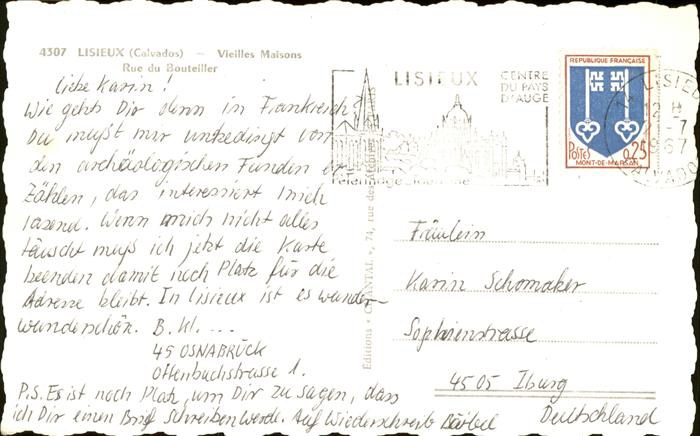 4307 LISIEUX (Calvados) — Vieilles Maisons
Rue du Bouteiller
liebe Karin!
Wie gehts Dir denn in Frankreich?
Du mußt mir unbedingt von
den archäologischen Funden er-
zählen, das interessiert mich
rasend. Wenn mich nicht alles
täuscht muß ich jetzt die Karte
beenden damit noch Platz für die
Adresse bleibt. In Lisieux ist es wunder-
wunderschön. B. Kl. ...
45 OSNABRÜCK
Offenbuchstrasse 1.
P.S. Es ist noch Platz, um Dir zu sagen, dass
ich Dir einen Brief schreiben werde. Auf Wiederschreib Bärbel
Editions « CHANTAL », 74, rue des
LISIEUX
CENTRE
DU PAYS
D'AUGE
Pèlerinage
REPUBLIQUE FRANÇAISE
POSTES 0,25
MONT-DE-MARSAN
14 LISIEUX
12 H
-7
1967
CALVADOS
Fräulein
Karin Schomaker
Sophienstrasse
4505 Iburg
Deutschland